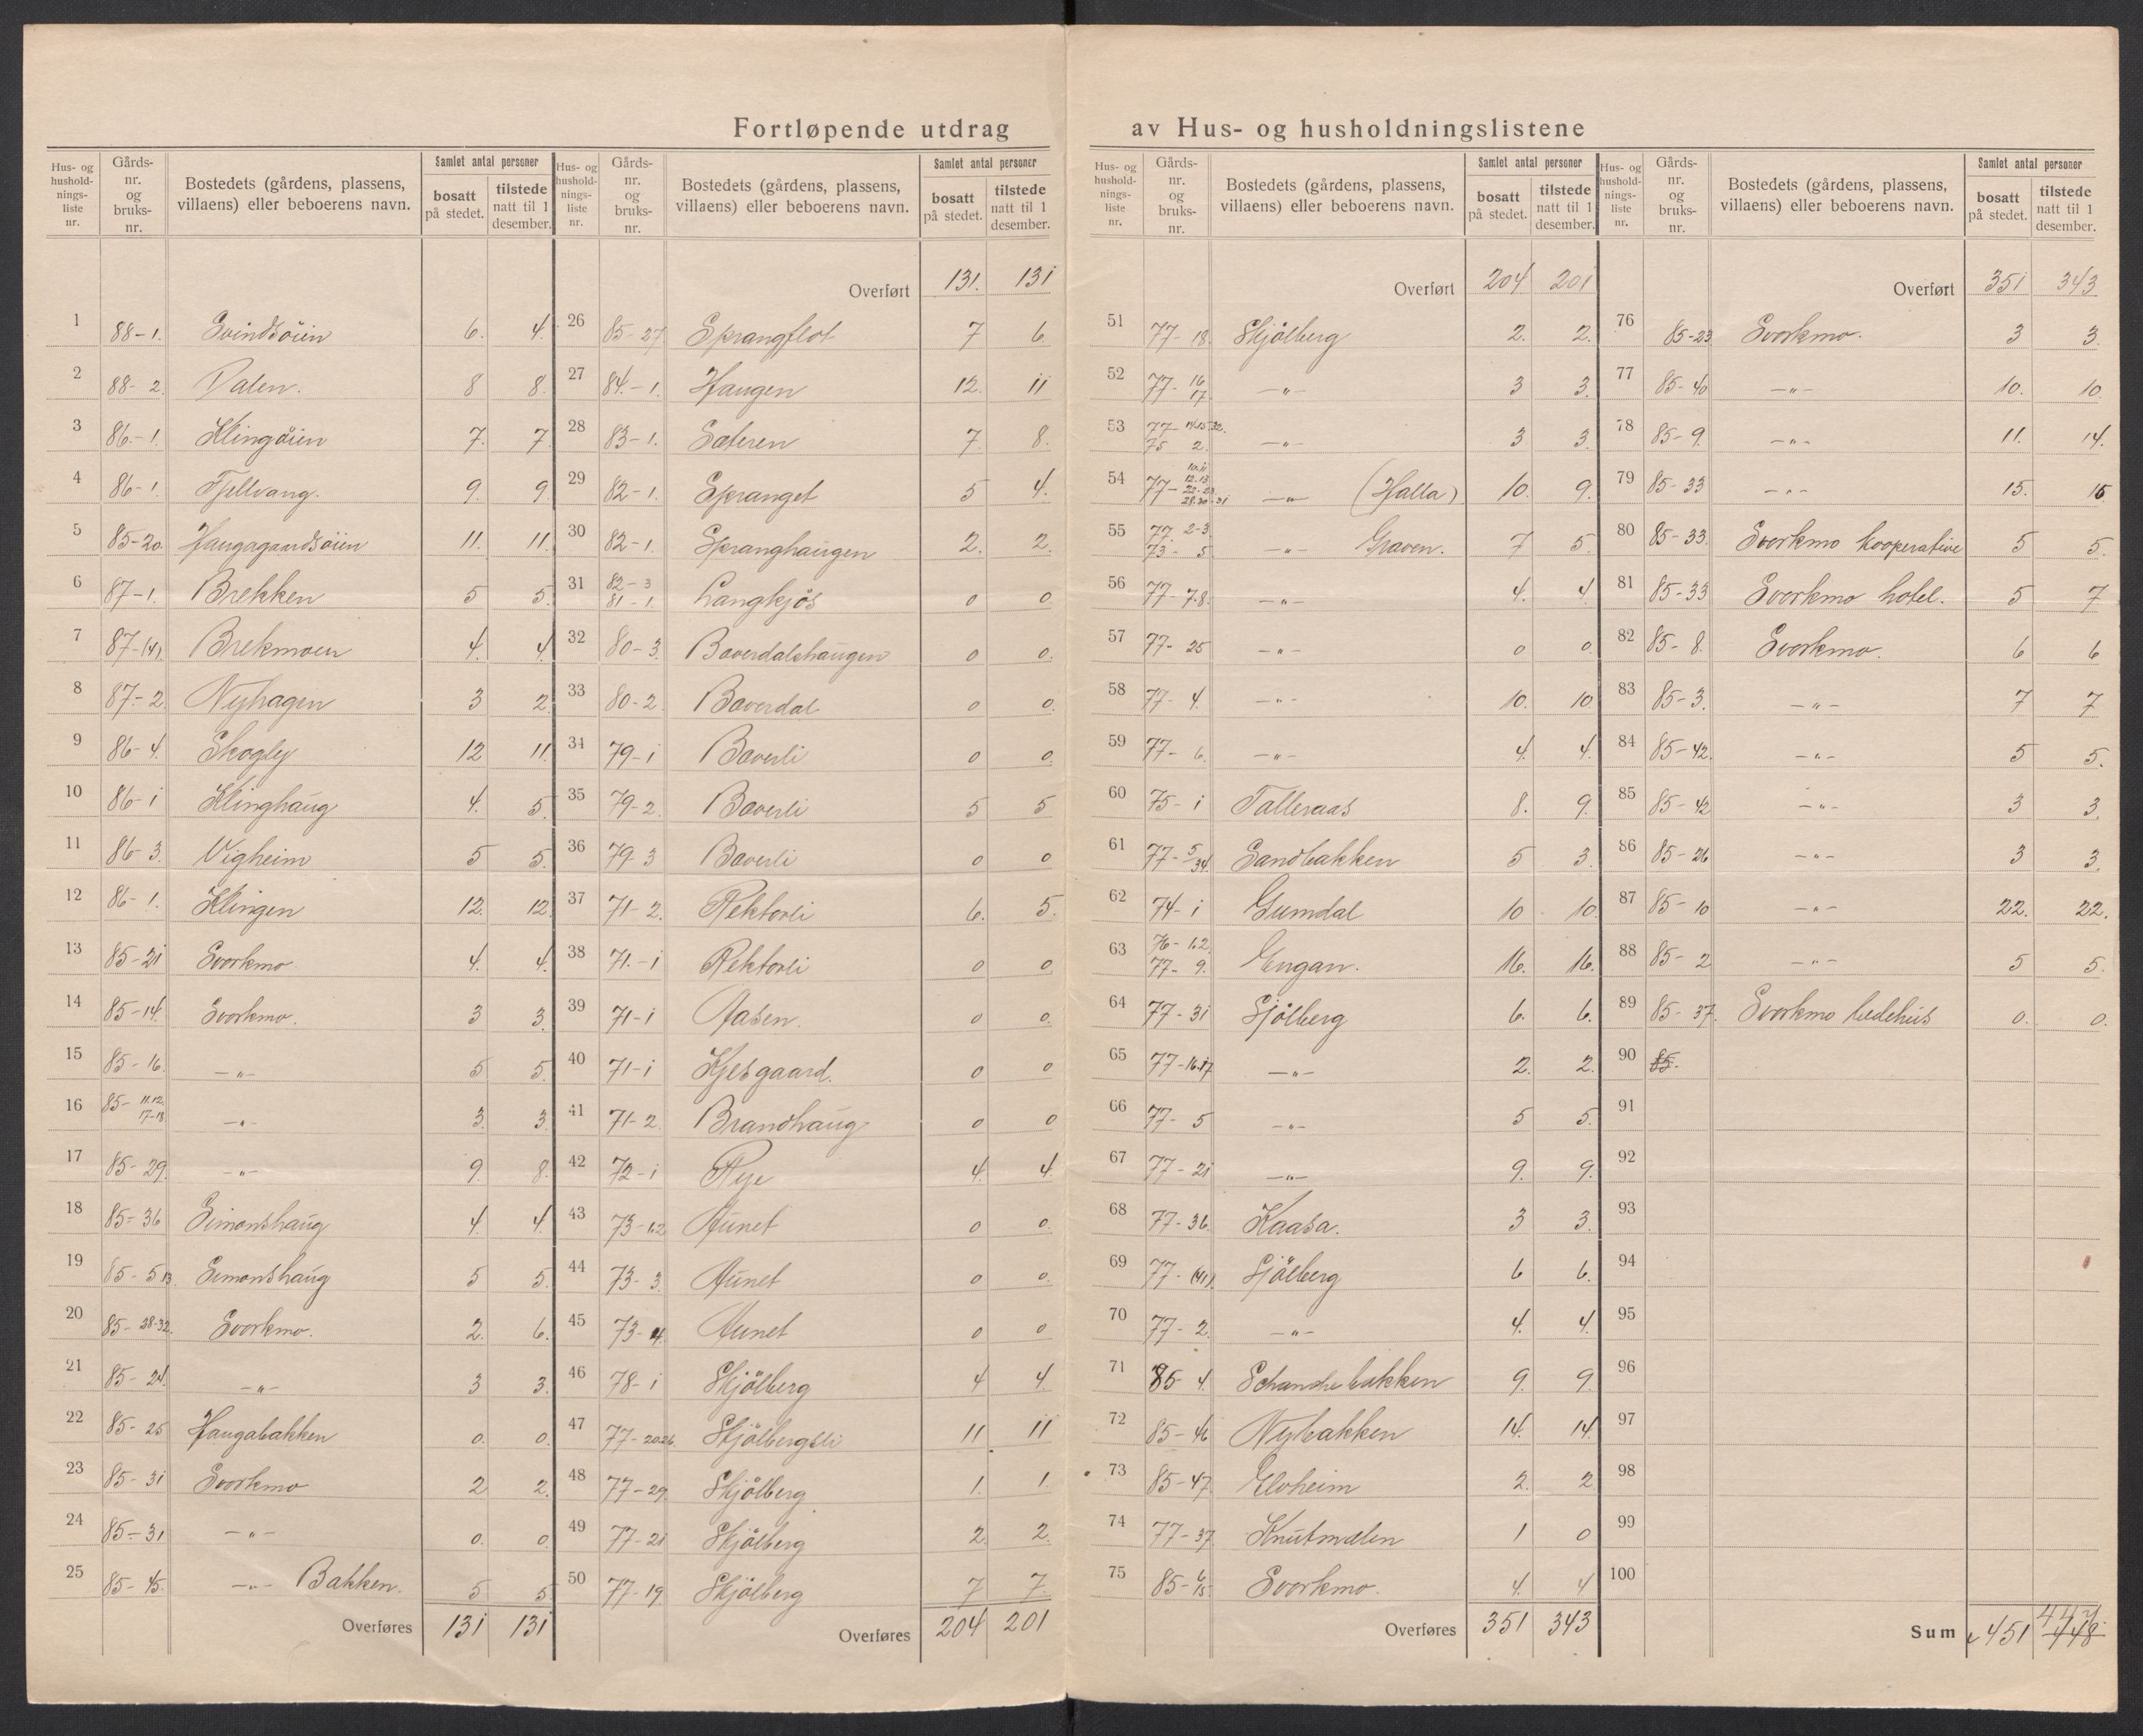 Fortløpende utdrag av Hus- og husholdningslistene
Hus- og husholdningsliste nr. | Gårds-nr. og bruks-nr. | Bostedets (gårdens, plassens, villaens) eller beboerens navn. | Samlet antal personer | bosatt på stedet. | tilstede natt til 1 desember.
1 88-1. Svindsøien 6. 4.
2 88-2 Dalen. 8 8.
3 86-1. Klingøien 7. 7.
4 86-1. Fjellvang. 9. 9.
5 85-20. Haugagaardsøien 11. 11.
6 87-1. Brekken 5 5.
7 87-(4) Brekmoen 4. 4.
8 87-2 Nyhagen 3 2.
9 86-4. Skogly 12 11.
10 86-1 Klinghaug 4. 5.
11 86-3. Vigheim 5 5.
12 86-1. Klingen 12. 12.
13 85-21 Svorkmo 4. 4.
14 85-14. Svorkmo. 3 3.
15 85-16. —"— 5 5.
16 85-11.12. 17-18. —"— 3. 3.
17 85-29. —"— 9. 8.
18 85-36 Simonshaug 4. 4.
19 85-5 13. Simonshaug 5 5.
20 85-28-32. Svorkmo. 2. 6.
21 85-24. —"— 3 3.
22 85-25 Haugabakken 0. 0.
23 85-31 Svorkmo 2 2.
24 85-31 —"— 0. 0.
25 85-45. —"— Bakken. 5 5.
Overføres 131 131
Hus- og husholdningsliste nr. | Gårds-nr. og bruks-nr. | Bostedets (gårdens, plassens, villaens) eller beboerens navn. | Samlet antal personer | bosatt på stedet. | tilstede natt til 1 desember.
Overført 131. 131
26 85-27 Sprangflot 7 6.
27 84.-1. Haugen 12. 11
28 83-1. Sæteren 7 8.
29 82-1. Spranget 5 4.
30 82-1. Spranghaugen 2. 2.
31 82-3 81-1. Langkjøs 0 0.
32 80-3. Baverdalshaugen 0 0.
33 80-2. Baverdal 0 0.
34 79-1 Baverli 0 0.
35 79-2. Baverli 5 5
36 79-3 Baverli 0 0
37 71-2. Rektorli 6. 5.
38 71.-1 Rektorli 0 0.
39 71-1 Aasen. 0 0.
40 71-1 Kjesgaard. 0 0
41 71-2. Brandhaug 0 0
42 72-1 Rye 4. 4.
43 73-1.2 Aunet 0 0.
44 73-3. Aunet 0 0.
45 73-4. Aunet 0 0
46 78-1 Skjølberg 4 4.
47 77-20.26. Skjølbergsli 11 11
48 77-29. Skjølberg 1. 1.
49 77-21 Skjølberg 2 2.
50 77-19 Skjølberg 7 7.
Overføres 204 201
Hus- og husholdningsliste nr. | Gårds-nr. og bruks-nr. | Bostedets (gårdens, plassens, villaens) eller beboerens navn. | Samlet antal personer | bosatt på stedet. | tilstede natt til 1 desember.
Overført 204 201
51 77-18. Skjølberg 2. 2.
52 77-16 17 —"— 3 3.
53 77-14.15.32. 75 2. —"— 3 3.
54 77-10.11 12.13 22-23 28.30-31 —"— (Halla) 10. 9.
55 77. 2-3 73-5 —"— Graven. 7 5.
56 77-7.8. —"— 4. 4.
57 77-25 —"— 0 0.
58 77-4. —"— 10. 10
59 77-6. —"— 4. 4.
60 75-1 Talleraas 8. 9.
61 77-5/34. Sandbakken 5 3.
62 74-1 Gumdal 10 10.
63 76-1.2 77-9. Engan. 16. 16.
64 77-31 Sjølberg 6. 6.
65 77-16.17 —"— 2. 2.
66 77-5 —"— 5 5.
67 77-21 —"— 9. 9.
68 77-36. Kaasa. 3 3.
69 77-(41). Sjølberg 6 6.
70 77-2. —"— 4. 4.
71 85 4. Schanshebakken 9. 9.
72 85-46 Nybakken 14. 14.
73 85-47. Elvheim 2. 2
74 77-37 Knutmælen 1 0
75 85-6/15. Svorkmo. 4. 4
Overføres 351 343
Hus- og husholdningsliste nr. | Gårds-nr. og bruks-nr. | Bostedets (gårdens, plassens, villaens) eller beboerens navn. | Samlet antal personer | bosatt på stedet. | tilstede natt til 1 desember.
Overført 351 343
76 85-23 Svorkmo. 3 3.
77 85-40 —"— 10. 10.
78 85-9. —"— 11. 14.
79 85-33 —"— 15. 15
80 85-33. Svorkmo kooperative 5 5.
81 85-33 Svorkmo hotel. 5 7
82 85-8. Svorkmo. 6 6
83 85-3. —"— 7 7
84 85-42. —"— 5 5.
85 85-42 —"— 3 3.
86 85-26 —"— 3 3.
87 85-10 —"— 22. 22.
88 85-2 —"— 5 5.
89 85-37. Svorkmo bedehus 0. 0.
90 85.
91
92
93
94
95
96
97
98
99
100
Sum 451 448